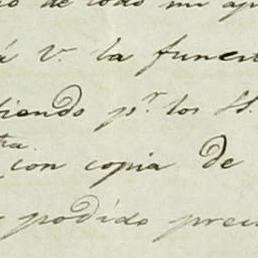 de todo mi ap
á V. la funes
tiendo p.r los SS.
tra.
con copia de
podido prec